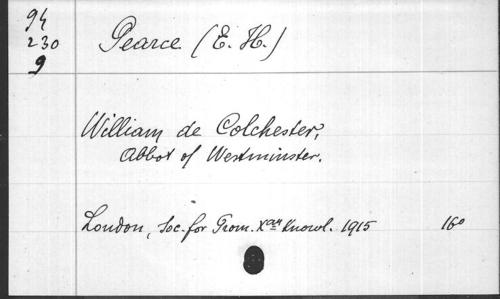 94
230
9
Pearce (E. H.)
William de Colchester,
Abbot of Westminster.
London, Soc. for Prom. Xan Knowl. 1915 16o